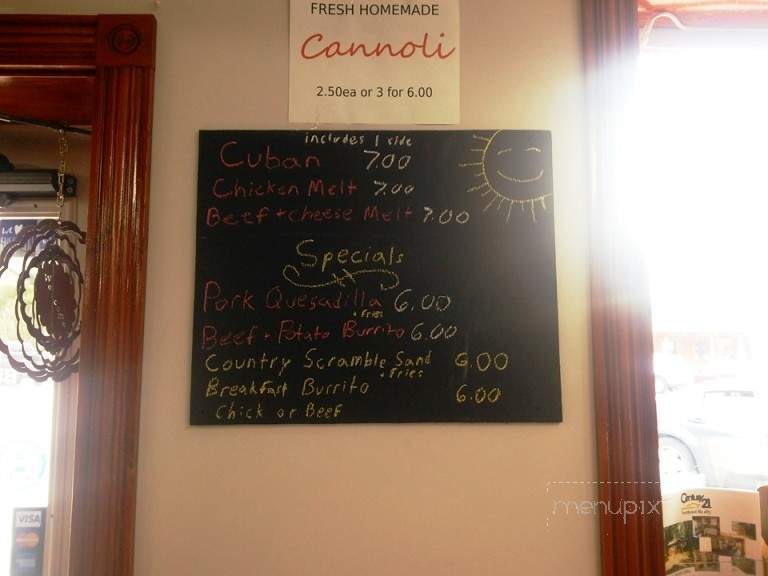 FRESH HOMEMADE
Cannoli
2.50ea or 3 for 6.00
includes 1 side
Cuban 7.00
Chicken Melt 7.00
Beef + cheese Melt 7.00
Specials
Pork Quesadilla 6.00
+ Fries
Beef + Potato Burrito 6.00
Country Scramble Sand 6.00
+ Fries
Breakfast Burrito 6.00
Chick or Beef
VISA
MasterCard
menupix
Century 21